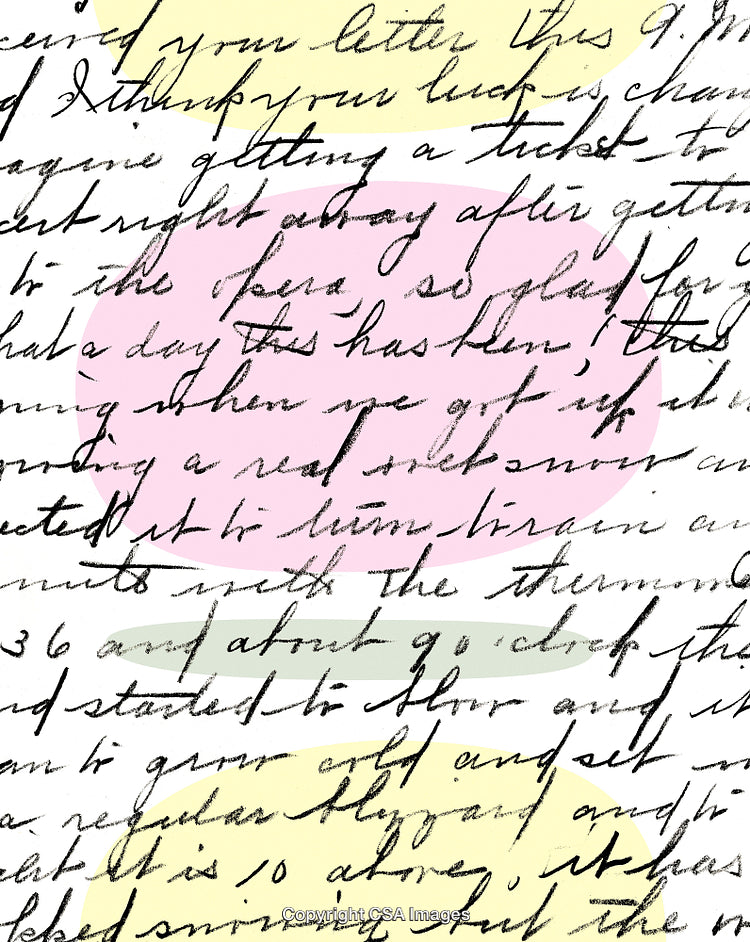 ceived your letter this P.M
d I think your luck is chan
agine getting a ticket to
cert right away after gettin
to the opera, so glad for y
hat a day this has been, ! this
ning when we got up it w
owing a real wet snow an
ected it to turn to rain an
nute with the thermome
36 and about 9 o'clock the
nd started to blow and it
an to grow cold and set
a regular blizzard and to
it is 10 above, it has
snowing but the
Copyright CSA Images